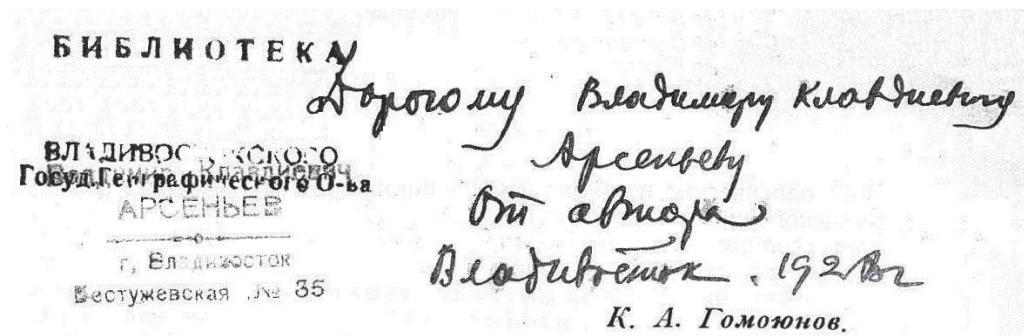 БИБЛИОТЕКА
ВЛАДИВОСТОКСКОГО
Госуд.Географического О-ва
Владимир Клавдиевич
АРСЕНЬЕВ
г. Владивосток
Бестужевская № 35
Дорогому Владимиру Клавдиевичу
Арсеньеву
от автора
Владивосток. 1928 г
К. А. Гомоюнов.